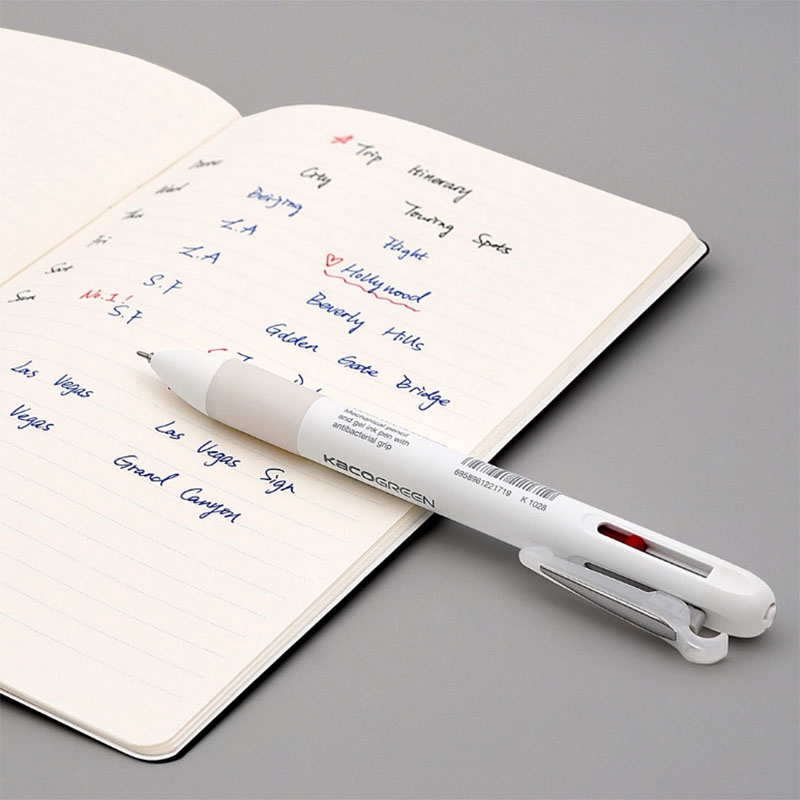 Trip Itinerary
City Touring Spots
Beijing Flight
Wed L.A Hollywood
Thu L.A Beverly Hills
Fri S.F Golden Gate Bridge
No.1!
Sat S.F
Sun Las Vegas Las Vegas Sign
Vegas Grand Canyon
Mechanical pencil
and gel ink pen with
antibacterial grip
KACOGREEN
6958961221719 K1028